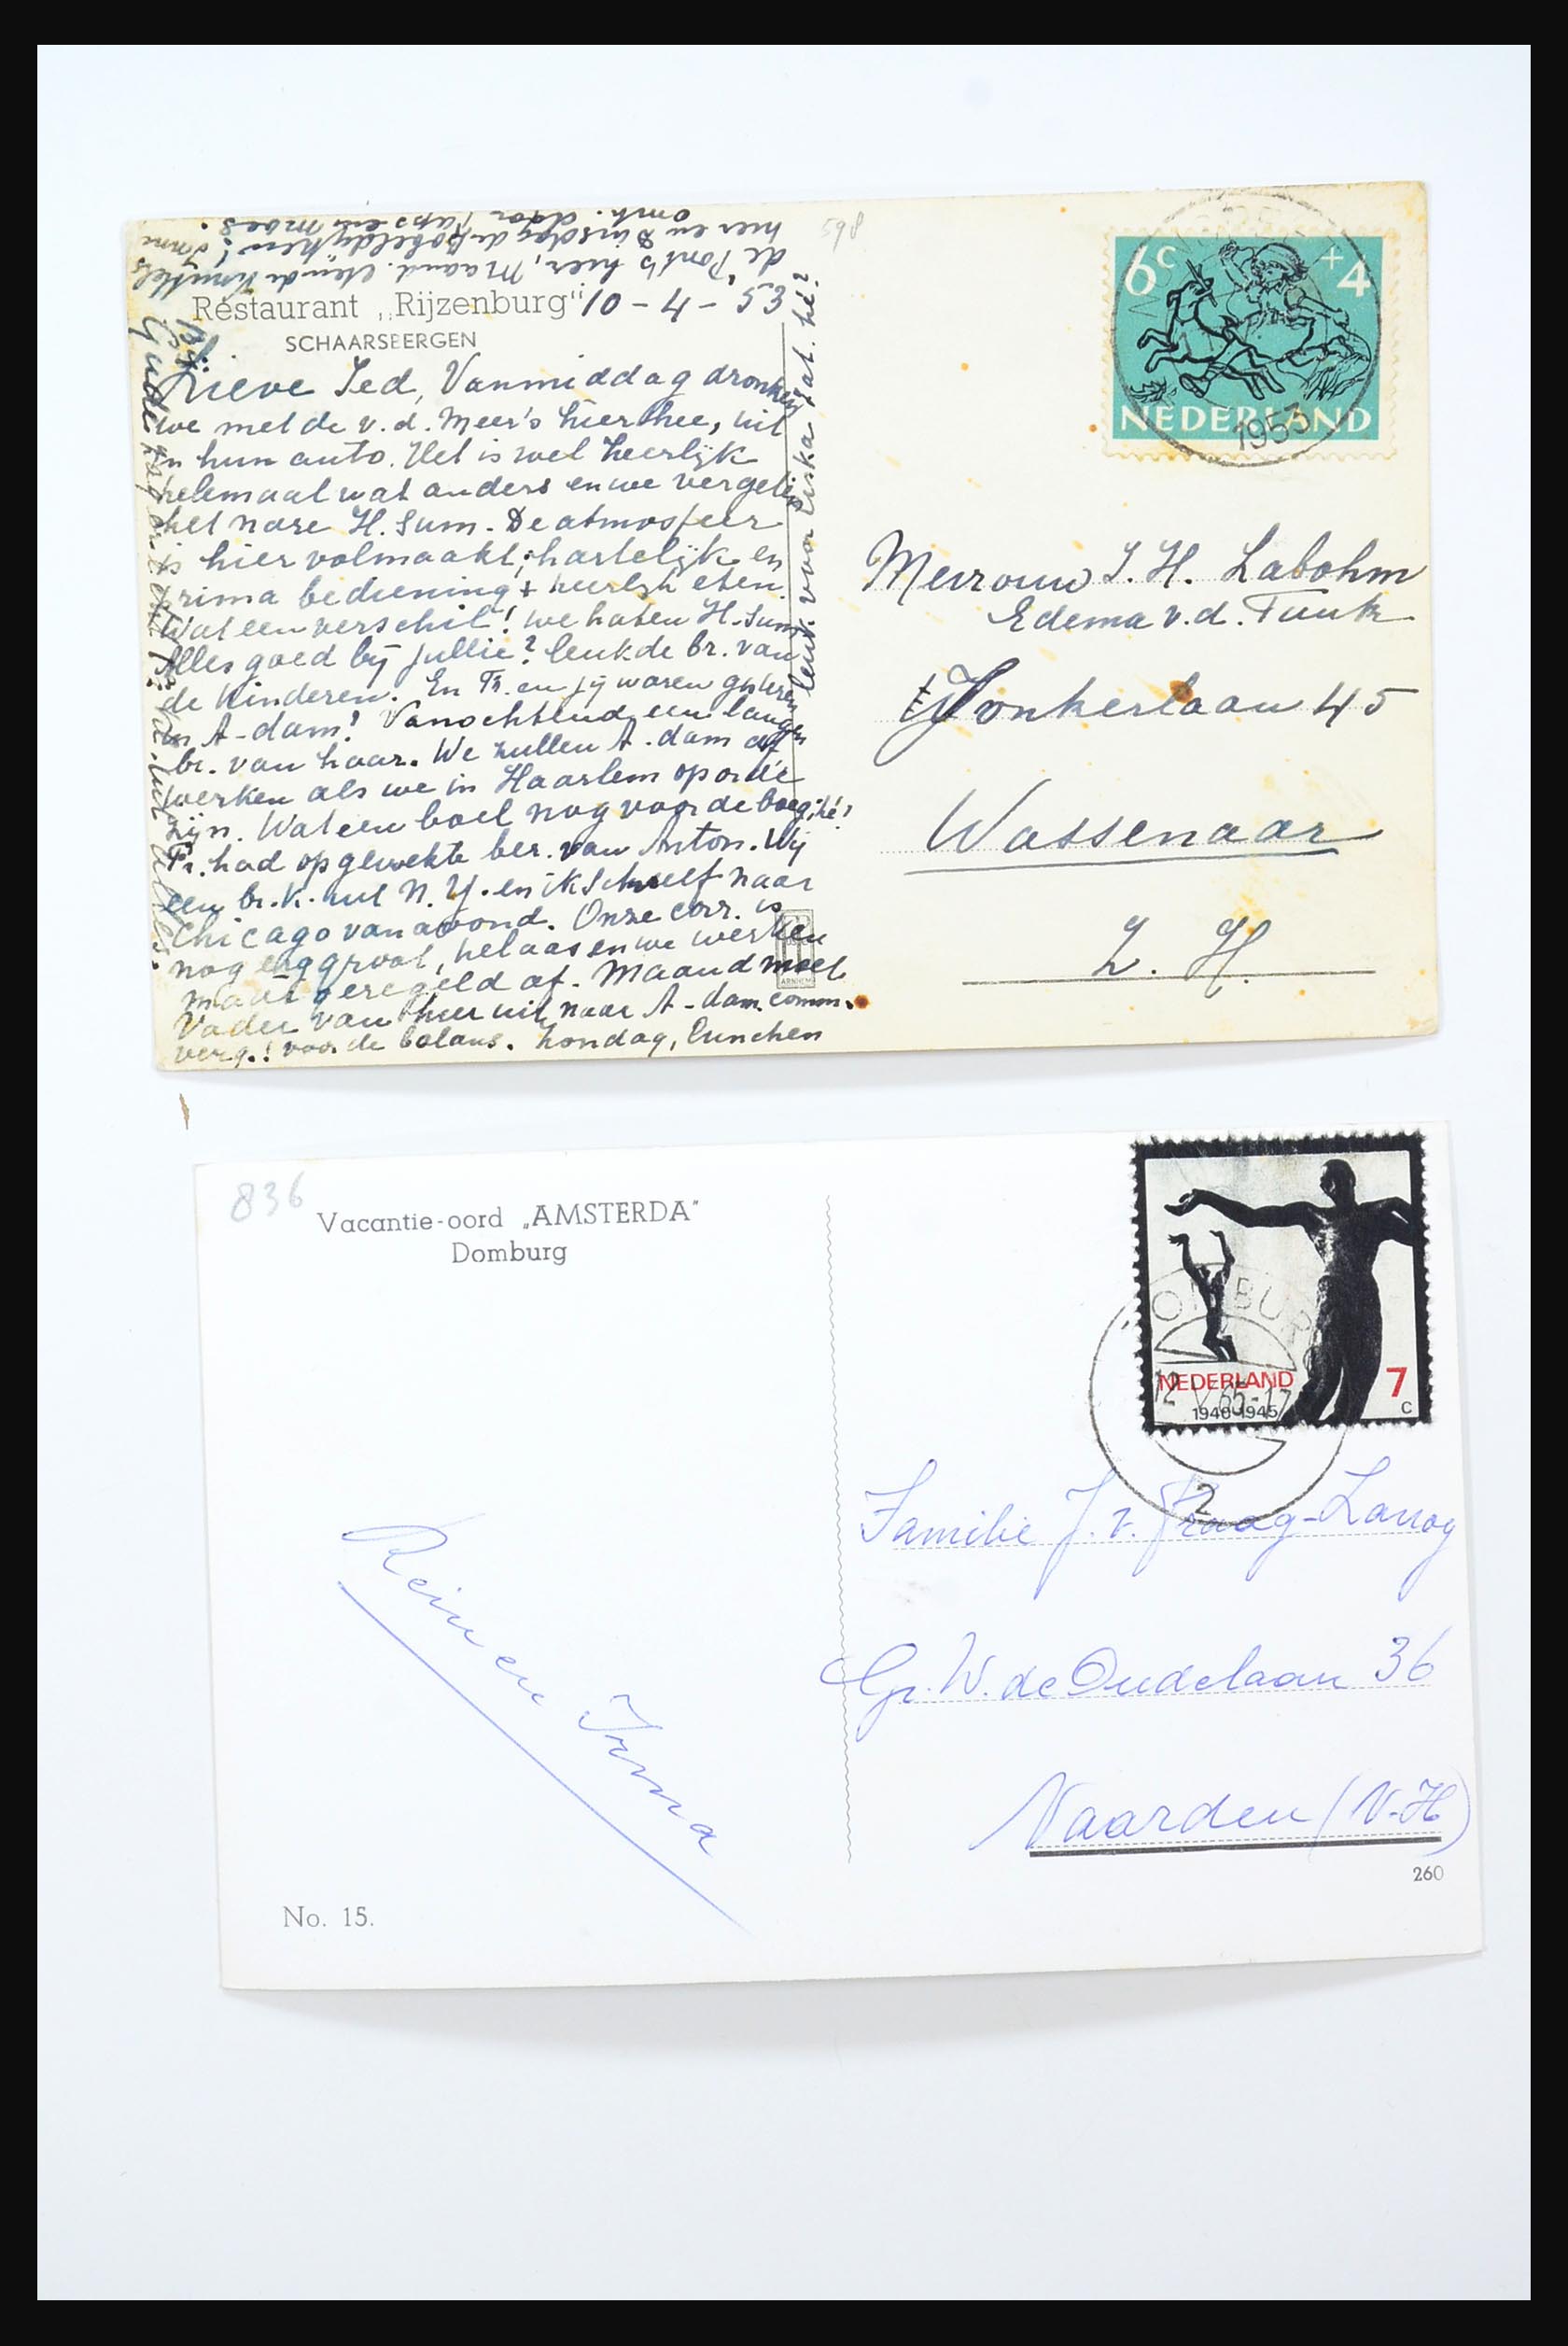 598
Restaurant „Rijzenburg"
10-4-53
SCHAARSBERGEN
Lieve Ted, Vanmiddag dronken
we met de v.d. Meer's hier thee, uit
in hun auto. Het is wel heerlijk
helemaal wat anders en we vergeten
het nare H. Sum. De atmosfeer
is hier volmaakt, hartelijk en
prima bediening + heerlijk eten.
Wat een verschil! we haten H. Sum
Alles goed bij jullie? leuk de br. van
de Kinderen. En Tr. en jij waren gisteren
in A-dam! Vanochtend een langen
br. van haar. We zullen A.dam af
werken als we in Haarlem op orde
zijn. Wat een boel nog voor de boeg, hè!
Tr. had opgewekte ber. van Anton. Wij
een br. k. uit N.Y. en ik schreef naar
Chicago van avond. Onze corr. is
nog erg groot, helaas en we werken
maar geregeld af. Maandag moet
Vader van hier uit naar A-dam, comm.
verg.! voor de balans. Zondag, lunchen
de Pont's hier, Maand. eten de
hier en Dinsdag de
omh. door Paps en Moes.
leuk voor tat. hè?
6c +4
NEDERLAND
1953
Mevrouw J. H. Labohm
Edema v.d. Tuuk
Jonkerlaan 45
Wassenaar
Z. H.
ARNHEM
836
Vacantie-oord „AMSTERDA"
Domburg
NEDERLAND
7
c
1940-1945
DOMBURG
12 V 65-17
2
Familie J. v. Praag-Lanoy
Gr. W. de Oudelaan 36
Naarden (N-H)
260
Rein en Irma
No. 15.